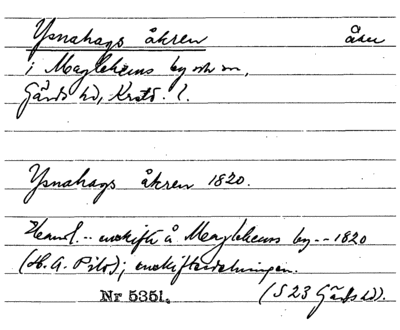 Ysnahags åkren åker
i Maglehems by och sn,
Gärds hd, Krist. l.
Ysnahags åkren 1820.
Handl. -- enskifte å Maglehems by -- 1820
(H. A. Pihl); enskiftesdelningen.
Nr 5351. (S 23 Gärds hd).